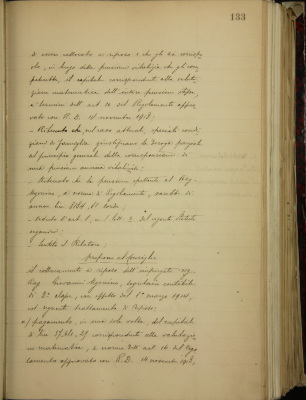 133
di essere collocato a riposo e che gli sia corrisposto,
in luogo della pensione vitalizia che gli
, il capitale corrispondente alla valutazione
matematica dell'intera pensione stessa,
a termini dell'art. 14 del Regolamento approvato
con R. D. 14 novembre 1913;
- Ritenuto che, nel caso attuale, speciali condizioni
di famiglia giustificano la deroga
al principio generale della corresponsione di
una pensione annua vitalizia;
- Ritenuto che la pensione spettante al Rag.
, a norma di Regolamento, sarebbe di
annue lire
- Veduto l'art. lett. del vigente Statuto
organico;
- Sentito il Relatore,
propone al Consiglio
il collocamento a riposo dell'impiegato sig.
Rag. Giovanni , segretario contabile
di 2ª classe, con effetto dal 1° marzo 1914,
col seguente trattamento di riposo:
a) pagamento, in una sola volta, del capitale
di Lire corrispondente alla valutazione
matematica, a norma dell'art. 14 del Regolamento
approvato con R. D. 14 novembre 1913,